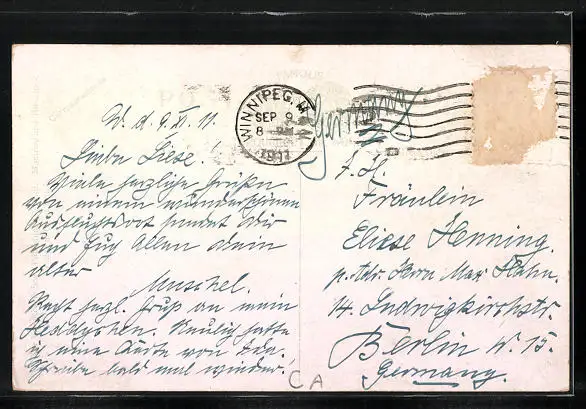 W. d. 9. IX. 11.
Liebe Liese!
Viele herzliche Grüße
von einem wunderschönen
Ausflugsort sendet Dir
und Euch Allen Dein
alter
Muschel.
Recht herzl. Gruß an mein
Neulich hatte
ich eine Karte von
Schreibe bald mal wieder!
WINNIPEG, M
SEP 9
8 PM
1911
Germany
Fräulein
Eliese Henning.
p. Adr. Herrn Max Hahn.
14. Ludwigkirchstr.
Berlin W. 15.
Germany.
CA